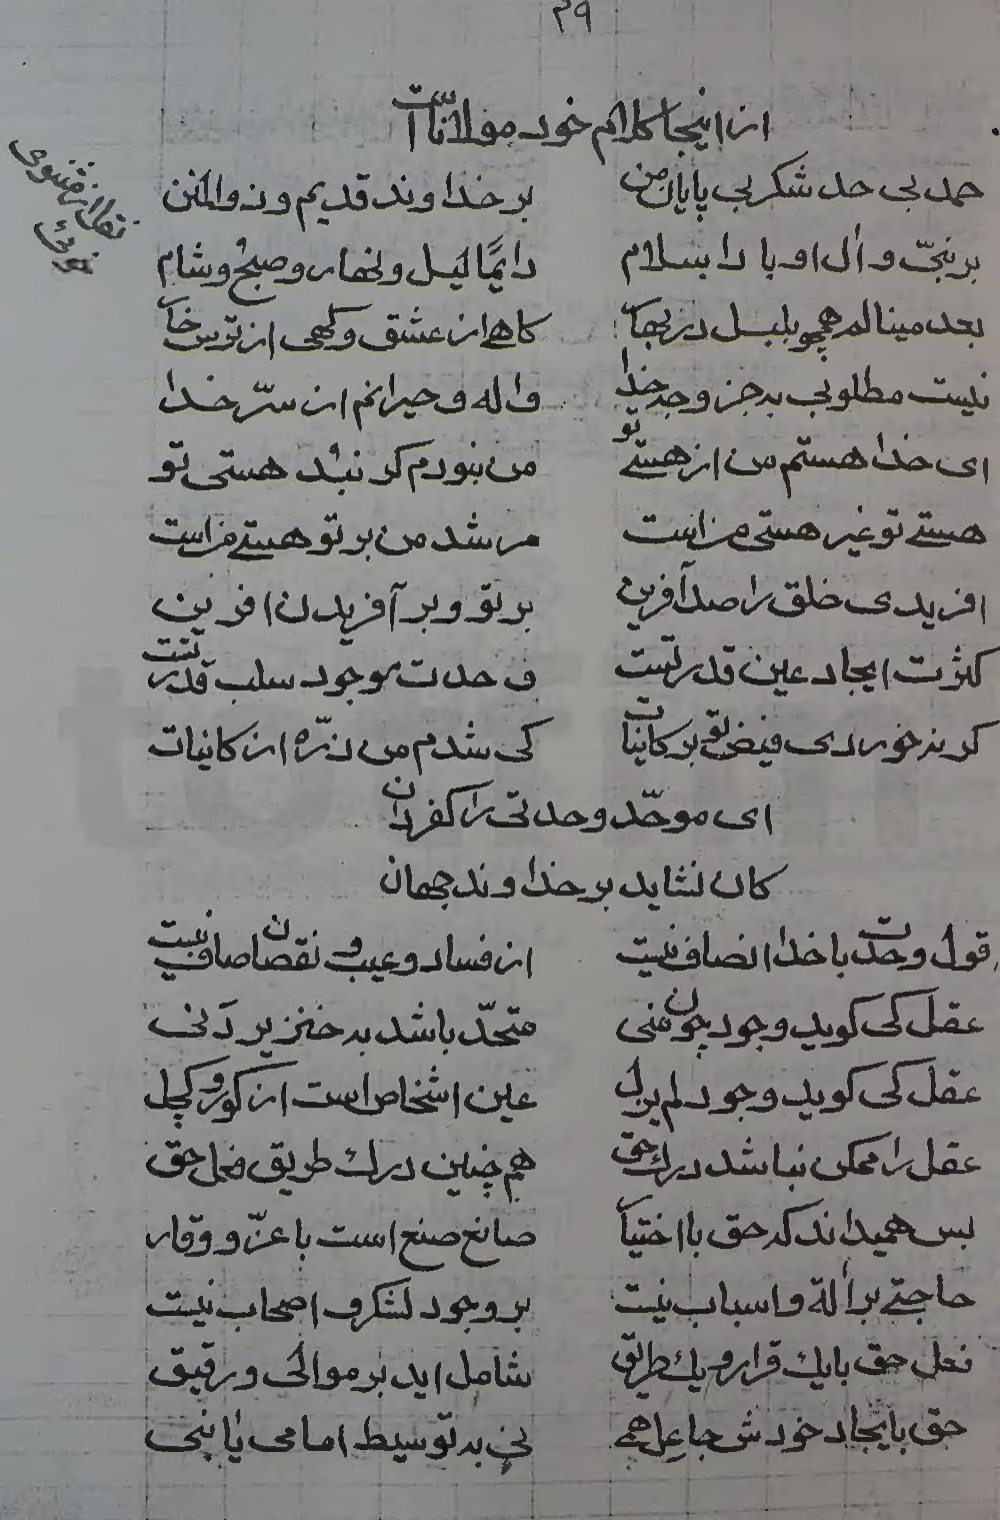 ۳۹
از اینجا کلام خود مولاناست
نقل از مثنوی
حمد بی حد شکر بی پایان من بر خداوند قدیم و ذوالمنن
بر نبیّ و اٰل او بادا سلام دایمًا لیل و نهار و صبح و شام
بعد مینالم همچو بلبل در بهار کاهے از عشق و کهی از ترس خار
نیست مطلوبی بجز وجه خدا واله و حیرانم از سرّ خدا
ای خدا هستم من از هستے تو من نبودم کر نبد هستی تو
هستے تو غیر هستی مراست مر شد من بر تو هستے مراست
افریدی خلق را صد آفرین بر تو و بر آفریدن افرین
کثرت ایجاد عین قدرتست وحدت موجود سلب قدرتست
کر نه خوردی فیض تو بر کاینات کی شدم من ذرّه از کاینات
ای موحّد وحدتی را کفر دان
کان نشاید بر خداوند جهان
قول وحدت با خدا انصاف نیست از فساد و عیب و نقصان صاف نیست
عقل کی کوید وجود چون منی متحدّ باشد به خنزیر دنی
عقل کی کوید وجود لم یزل عین اشخاص است از کور و کچل
عقل را ممکن نباشد درك حق هم چنین درك طریق فعل حق
بس همیداند که حق با اختیار صانع صنع است با عزّ و وقار
حاجتے بر اٰلة و اسباب نیست بر وجود لشکر و اصحاب نیست
فعل حق با یك قرار و یك طریق شامل اید بر موالی و رقیق
حق بایجاد خودش جاعل همے نی به توسیط امامی یا نبی